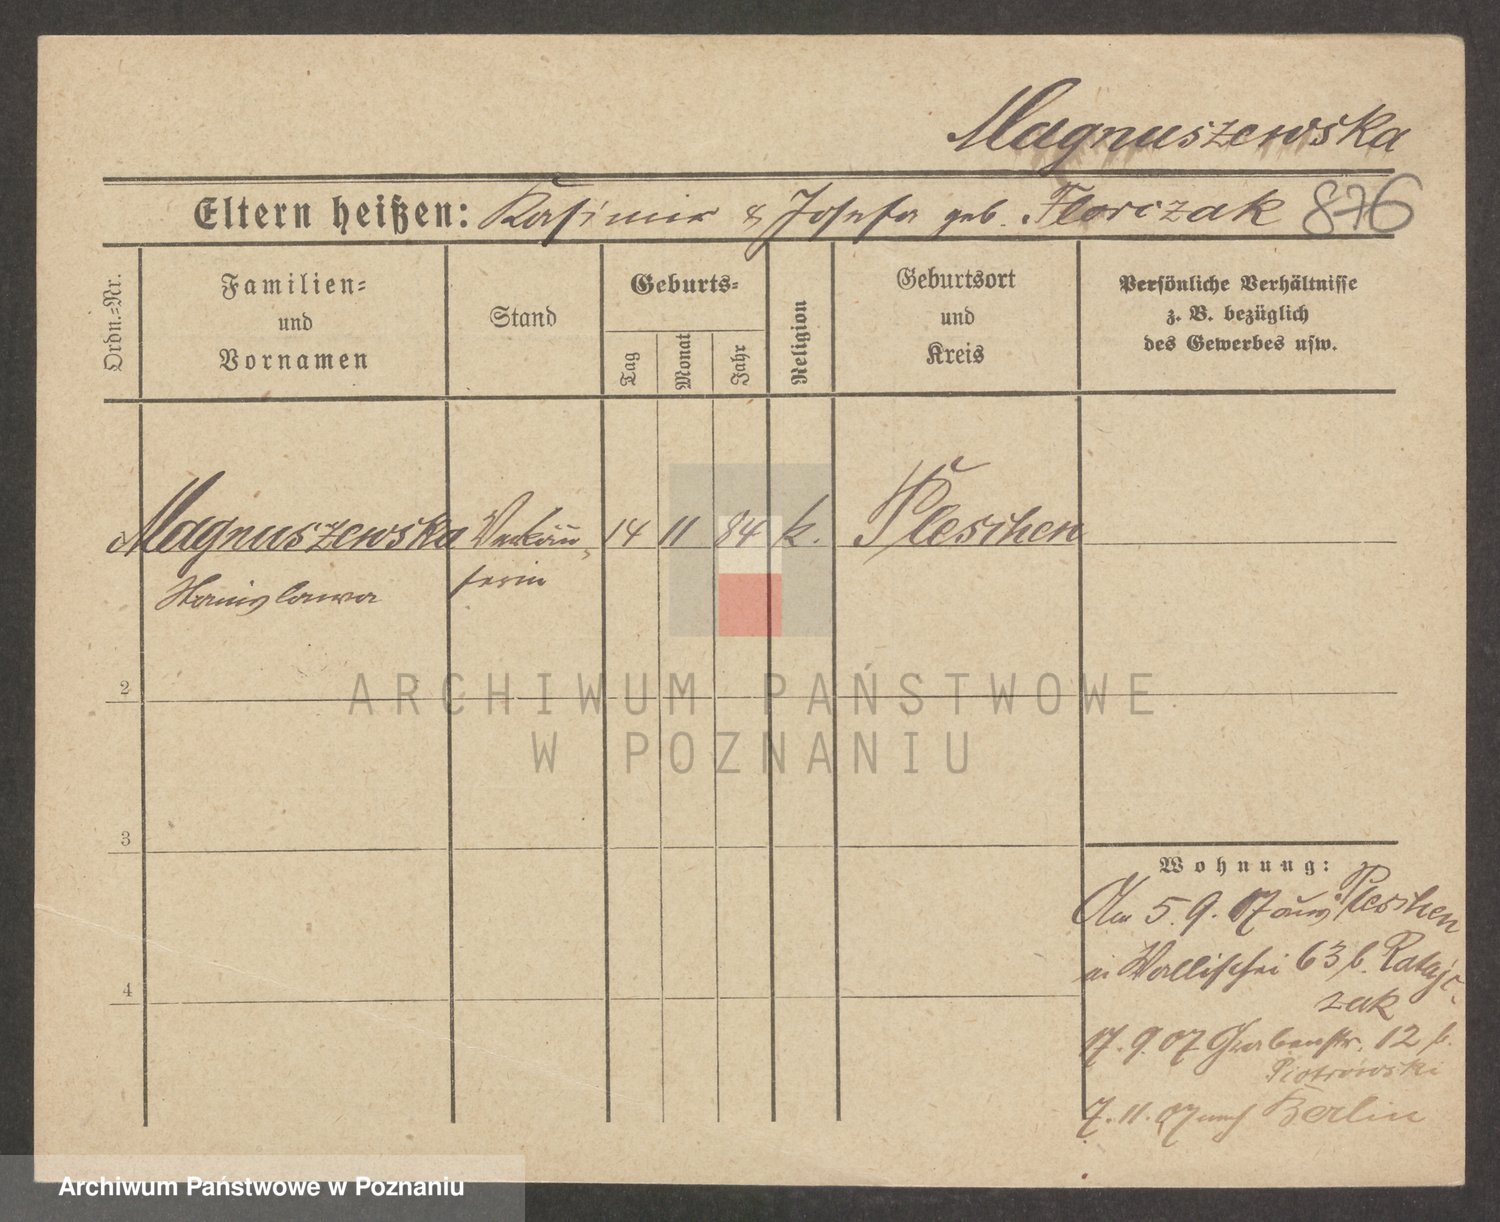 Magnuszewska
Eltern heißen: Kasimir & Josefa geb. Florczak 876
Ordn.-Nr.
Familien-
und
Vornamen
Stand
Geburts-
Tag
Monat
Jahr
Religion
Geburtsort
und
Kreis
Persönliche Verhältnisse
z. B. bezüglich
des Gewerbes usw.
Magnuszewska Verkäu- 14 11 84 k. Pleschen
Stanislawa ferin
2
3
4
Wohnung:
Am 5. 9. 07 aus Pleschen
in Wallischei 63 b. Ratajc-
zak
17. 9. 07 Grabenstr. 12 b.
Piotrowski
7. 11. 07 nach Berlin
ARCHIWUM PAŃSTWOWE
W POZNANIU
Archiwum Państwowe w Poznaniu